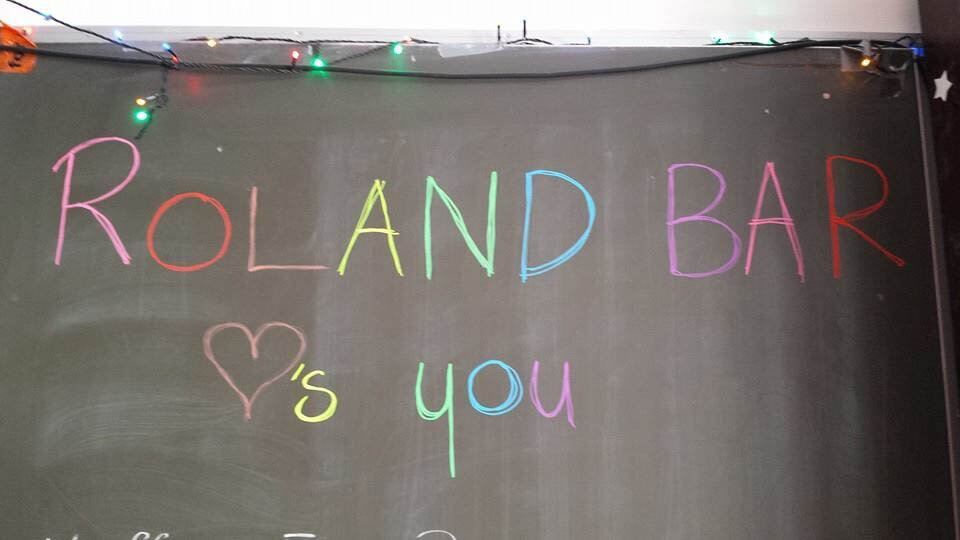 ROLAND BAR
♡'s you